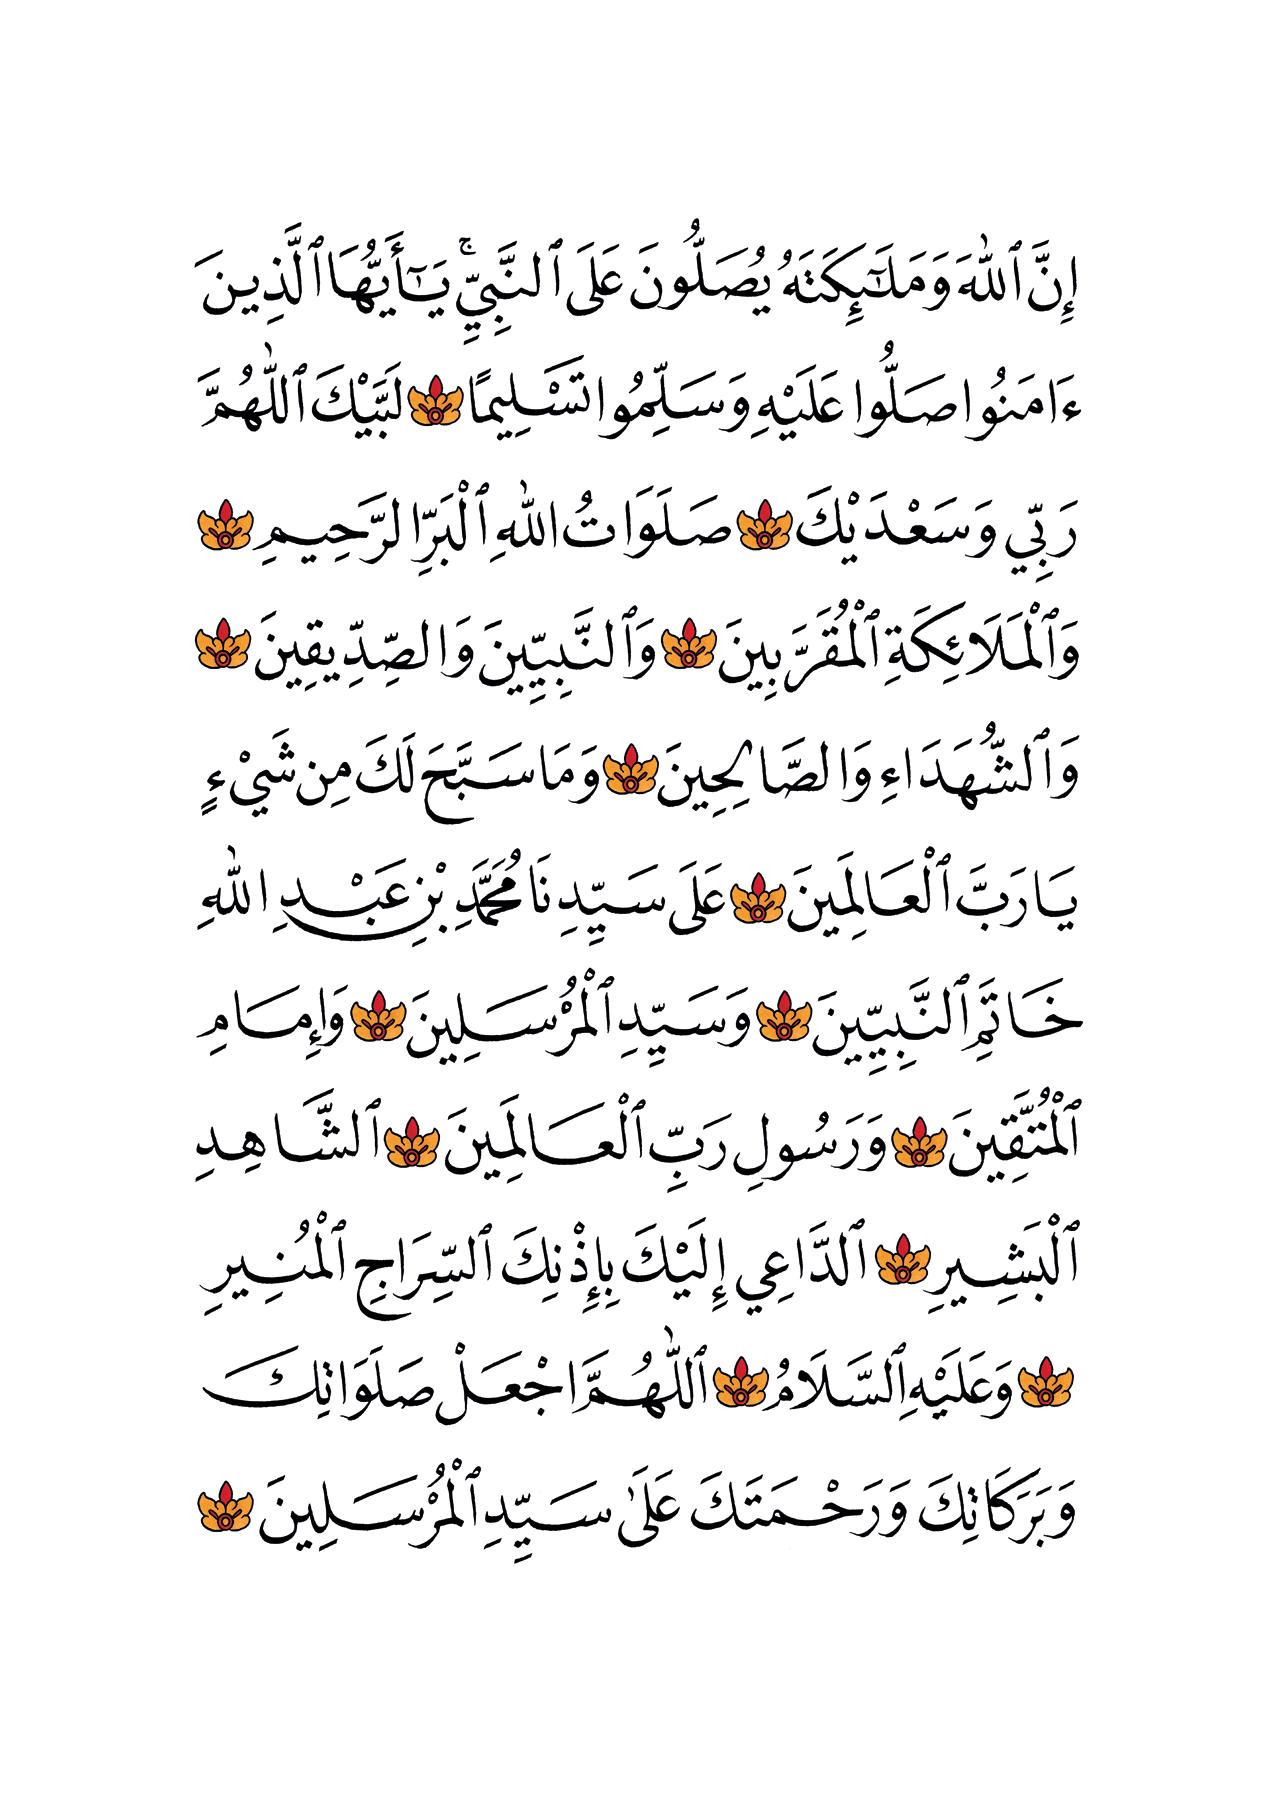 إِنَّ ٱللَّهَ وَمَلَـٰٓئِكَتَهُۥ يُصَلُّونَ عَلَى ٱلنَّبِيِّۚ يَـٰٓأَيُّهَا ٱلَّذِينَ
ءَامَنُوا صَلُّوا عَلَيْهِ وَسَلِّمُوا تَسْلِيمًا لَبَّيْكَ ٱللَّهُمَّ
رَبِّي وَسَعْدَيْكَ صَلَوَاتُ اللَّهِ ٱلْبَرِّ الرَّحِيمِ
وَٱلْمَلَائِكَةِ ٱلْمُقَرَّبِينَ وَٱلنَّبِيِّينَ وَالصِّدِّيقِينَ
وَٱلشُّهَدَاءِ وَالصَّالِحِينَ وَمَا سَبَّحَ لَكَ مِن شَيْءٍ
يَارَبَّ ٱلْعَالَمِينَ عَلَى سَيِّدِنَا مُحَمَّدِ بْنِ عَبْدِ اللَّهِ
خَاتَمِ ٱلنَّبِيِّينَ وَسَيِّدِ ٱلْمُرْسَلِينَ وَإِمَامِ
ٱلْمُتَّقِينَ وَرَسُولِ رَبِّ ٱلْعَالَمِينَ ٱلشَّاهِدِ
ٱلْبَشِيرِ ٱلدَّاعِي إِلَيْكَ بِإِذْنِكَ ٱلسِّرَاجِ ٱلْمُنِيرِ
وَعَلَيْهِ ٱلسَّلَامُ ٱللَّهُمَّ اجْعَلْ صَلَوَاتِكَ
وَبَرَكَاتِكَ وَرَحْمَتَكَ عَلَىٰ سَيِّدِ ٱلْمُرْسَلِينَ